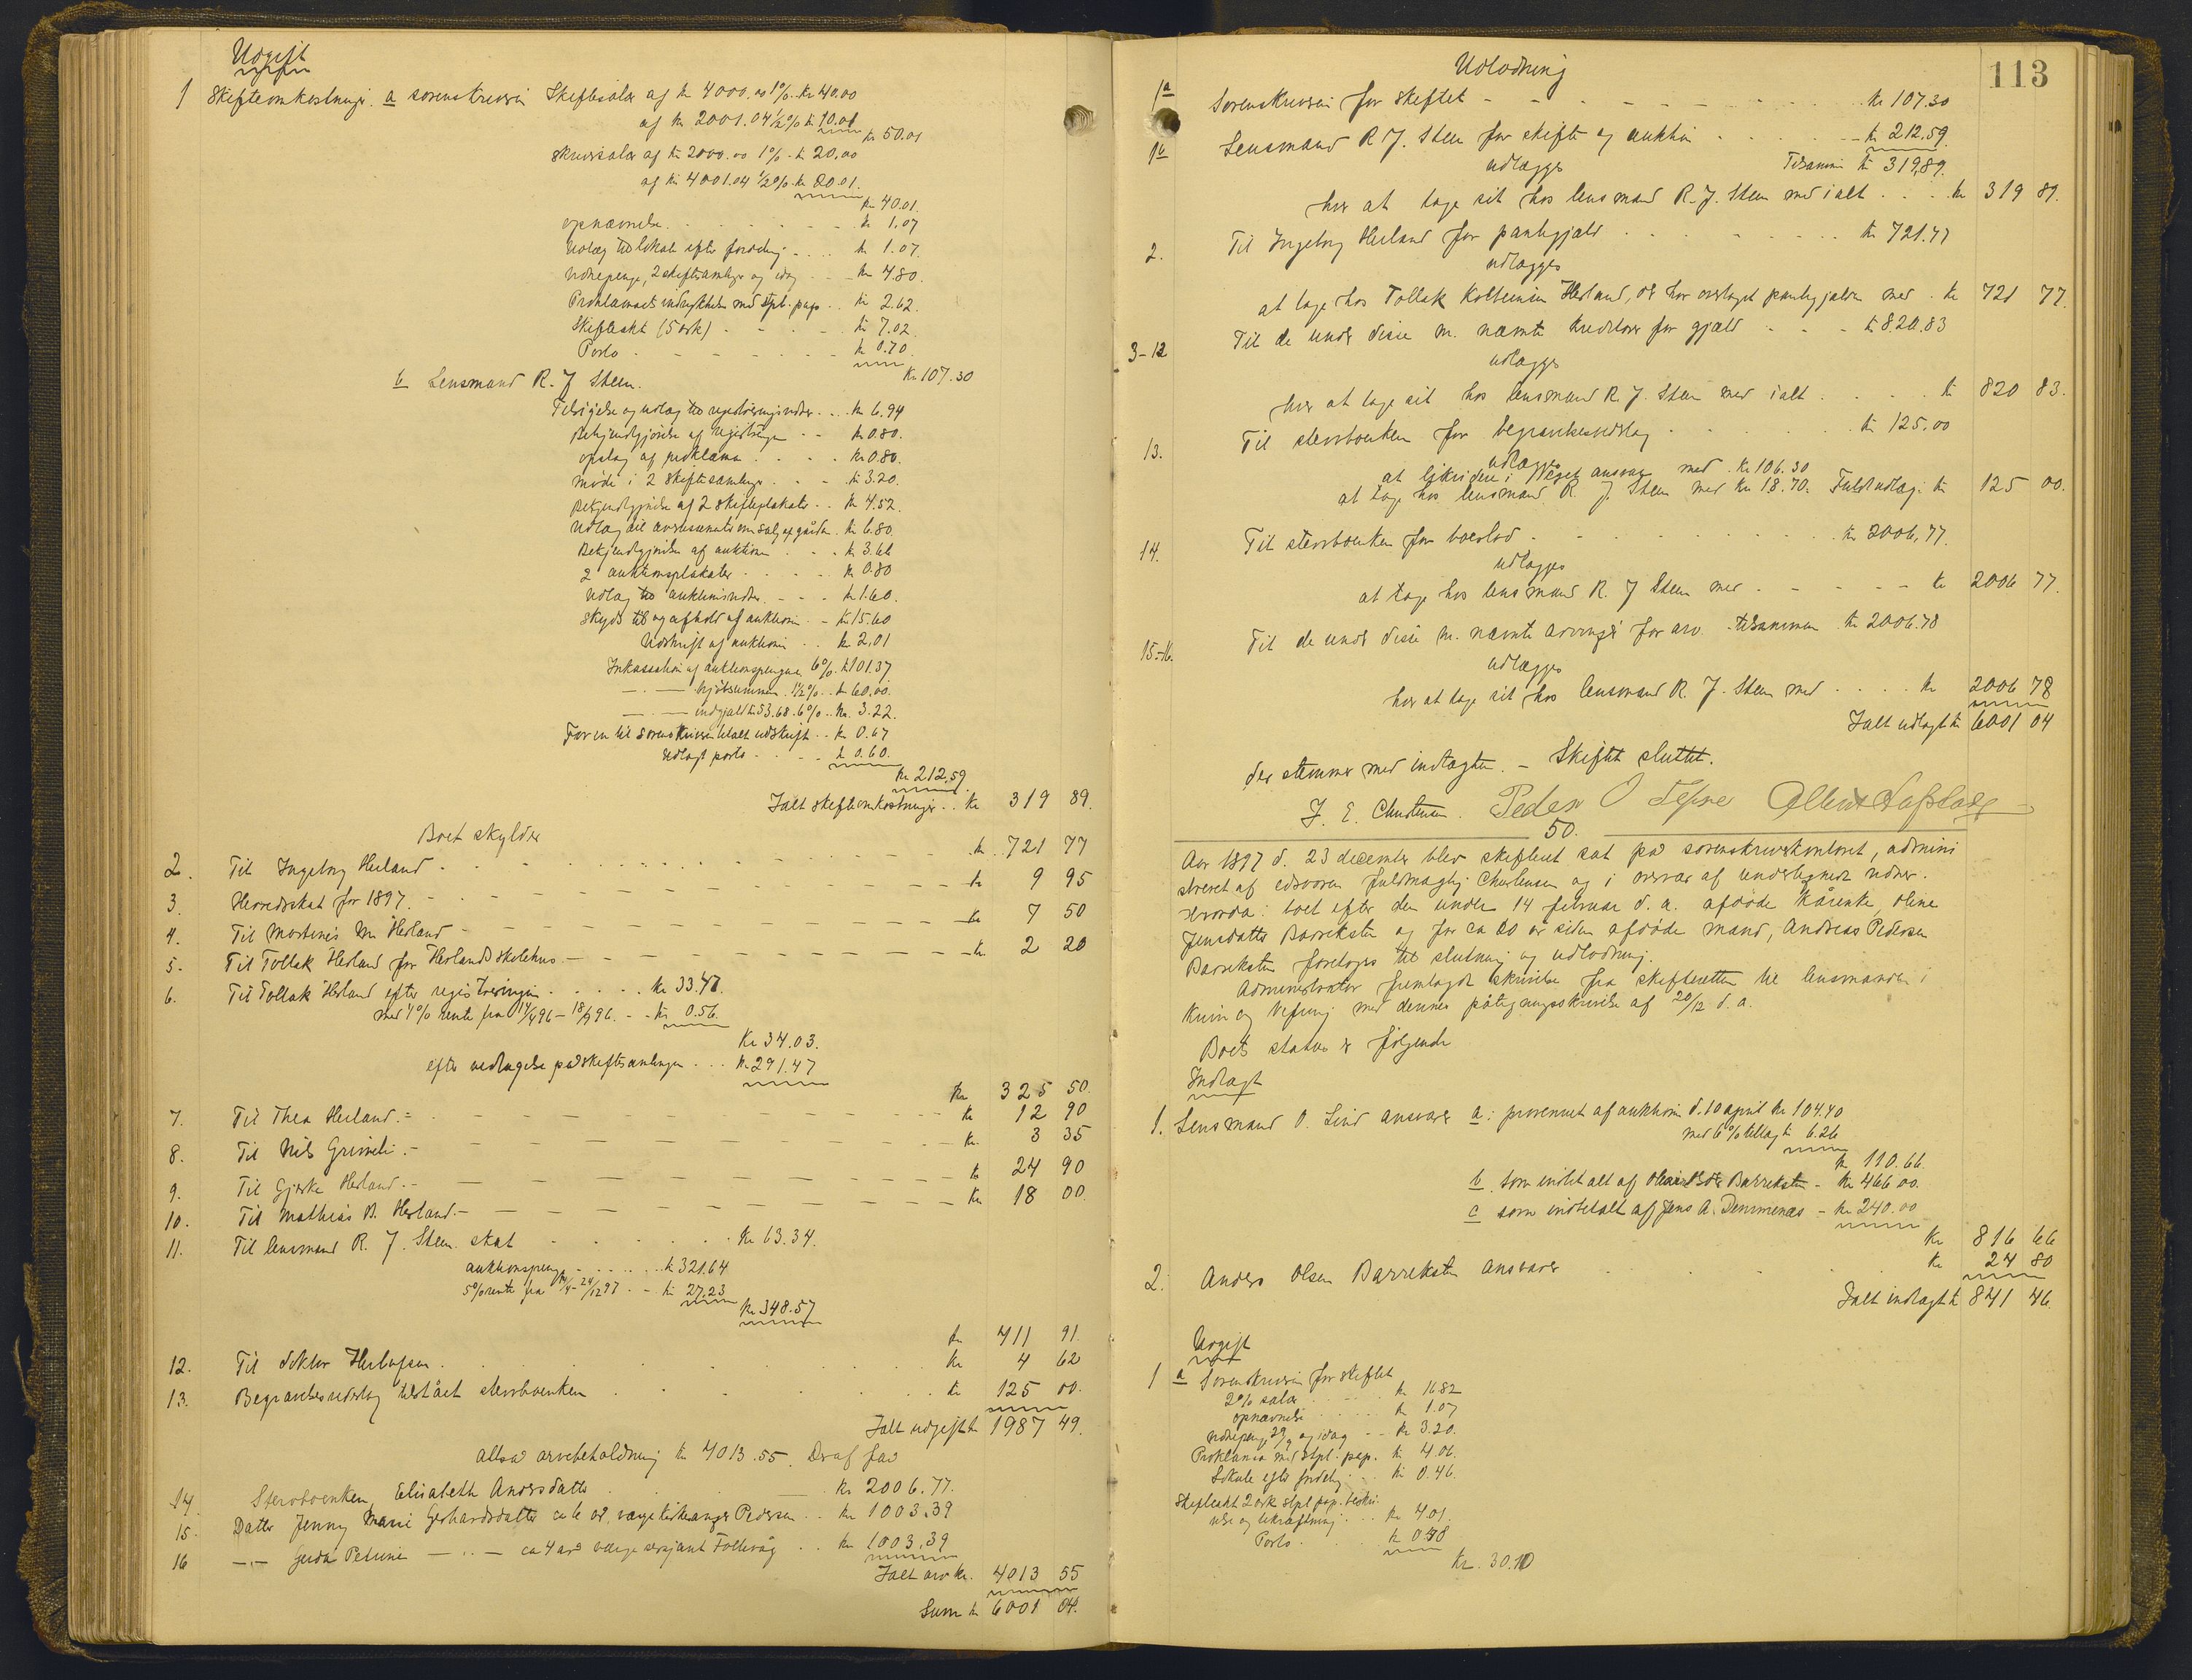 Udgift
1 Skifteomkostninger. a sorenskriveren Skiftesalær af kr 4000.00 1% - Kr 40.00
af kr 2001.04 ½% kr 10.01
Kr 50.01
skriversalær af kr 2000.00 1% - kr 20,00
af kr 4001.04 ½% - kr 20.01.
Kr 40.01.
opnævnelse . . . kr 1.07
Udlæg til lokale efter fordeling - . . . kr 1.07.
Vidnepenge, 2 skiftesamlinger og idag - - - kr 4.80.
Proklamaets indrykkelse med stpl. papir . . kr 2.62.
Skifteakt (5 ark) - - - kr 7.02.
Porto - - - kr 0.70.
Kr 107.30
b Lensmand R. J Steen.
Tilsigelse og udlæg til registreringsvidner . . . kr 6.94
Bekjendtgjørelse af registreringen - - kr 0.80.
opslag af proklama . . . kr 0.80.
møde i 2 skiftesamlinger . . - kr 3.20.
Bekjendtgjørelse af 2 skifteplakater . . kr 4.52.
Udlæg til avisannonce om salg af gården . kr 6.80.
Bekjendtgjørelse af auktionen . . . kr 3.66
2 auktionsplakater . . . kr 0.80
Udlæg til auktionsvidner . - - kr 1.60.
Skyds til og afhold af auktionen - kr 15.60
Udskrift af auktionen . . kr 2,01
Inkassation af auktionspengene 6% . kr 101.37
— - — kjøbesummen . 1½% . . kr 60.00.
— - — indgjæld kr 53.68 . 6% . . kr. 3.22.
For en til sorenskriveren betalt udskrift . . kr 0.67
Udlagt porto - . . - kr 0.60.
Kr 212,59.
Ialt skifteomkostninger . . kr 319 89.
Boet skylder
2. Til Ingeborg Herland . - - - kr. 721 77
3. Herredsskat for 1897. - - - kr 9 95
4. Til Martinus M. Herland - - - kr 7 50
5. Til Tollak Herland for Herlands skolehus - - - kr. 2 20
6. Til Tollak Herland efter registreringen . . . . . kr 33.47.
med 4% rente fra 14/4 96 - 18/9 96. - - kr 0.56.
Kr 34.03.
efter vedtagelse på skiftesamlingen . . . kr. 291.47
Kr 325 50.
7. Til Thea Herland. - - - kr 12 90
8. Til Nils Grimeli . - - - kr. 3 35
9. Til Gjerke Herland. - - - kr 24 90
10. Til Mathias B. Herland. - - - kr 18 00.
11. Til lensmand R. J. Steen. skat . . . kr 63.34.
auktionspenge . . . kr 321.64
5% rente fra - 24/12 97 . - kr 27.23
kr 348.57
kr 411 91.
12. Til doktor . . . kr 4 62
13. Begravelsesudlæg tilstået stervboenken . . . kr 125 00.
Ialt udgift kr 1987 49.
altså arvebeholdning kr 4013.55. Deraf får
14. Stervboenken, Elisabeth Andersdatter . . . kr 2006.77.
15. Datter Jenny Marie Gerhardsdatter ca 6 år, værge Pedersen . . kr 1003.39
16 — - — Gerda Petrine — . . — ca 4 år værge sersjant Follevåg . . kr 1003.39
Ialt arv kr. 4013 55
Sum kr 6001 04.
113
Udlodning
1a Sorenskriveren for skiftet - - - kr 107.30
1b Lensmand R J. Steen for skifte og auktion . . . - kr 212,59.
udlægges Tilsammen kr 319,89.
hver at tage sit hos lensmand R. J. Steen med ialt . . . kr 319 89.
2. Til Ingeborg Herland for pantegjæld . . . kr 721.77
udlægges
at tage hos Tollak Kolbeinsen Herland, der har overtaget pantegjælden med . kr 721 77.
3-12 Til de under disse nr. nævnte kreditorer for gjæld - - - kr 820.83
udlægges
hver at tage sit hos lensmand R. J. Steen med ialt . . . kr 820 83.
13. Til stervboenken for begravelsesudlæg . . . kr 125.00
udlægges
at likvidere i eget ansvar med . kr 106.30
at tage hos lensmand R. J. Steen med kr 18.70. Fuldt udlæg. kr 125 00.
14. Til stervboenken for boeslod . . . kr 2006,77.
udlægges
at tage hos lensmand R. J Steen med . - - - kr 2006 77.
15-16. Til de under disse nr. nævnte arvinger for arv . tilsammen kr 2006.78
udlægges
hver at tage sit hos lensmand R. J. Steen med . . . . kr 2006 78
Ialt udlagt kr 6001 04
der stemmer med indtægten. - Skiftet sluttet.
J. E. Christensen. Peder O
50.
Aar 1897 d. 23 december blev skifteret sat på sorenskriverkontoret, admini
streret af edsvoren fuldmægtig Christensen og i overvær af undertegnede vidner.
Hvorda: boet efter den under 14 februar d. a. afdøde kårenke, Oline
Jensdatter Barrekstén og for ca 20 år siden afdøde mand, Andreas Pedersen
Barreksten foretoges til slutning og udlodning.
Administrator fremlagde skrivelse fra skifteretten til lensmanden i
Kinn og Vefring med dennes påtegningsskrivelse af 20/12 d. a.
Boets status er følgende
Indtægt
1. Lensmand O. Lind ansvarer a: provenuet af auktion d. 10 april kr 104.40
med 6% tillæg kr 6.26
kr 110.66.
b. som indbetalt af Barreksten - kr 466 00.
c som indbetalt af Jens A. Demmenæs - kr 240.00
Kr 816 66
2. Anders Olsen Barreksten ansvarer . . . kr 24 80
Ialt indtægt kr 841 46.
Udgift
1 a Sorenskriveren for skiftet
2% salær . . . kr 16.82
opnævnelse . . . kr 1.07
Vidnepenge 29/9 og idag - - kr 3.20.
Proklama med stpl. pap. kr 4.06.
Lokale efter fordeling . . . kr 0.46.
Skifteakt 2 ark stpl pap. beskri
velse og bekræftning . . . kr 4.01.
Porto . . . kr 0.48
Kr. 30.10